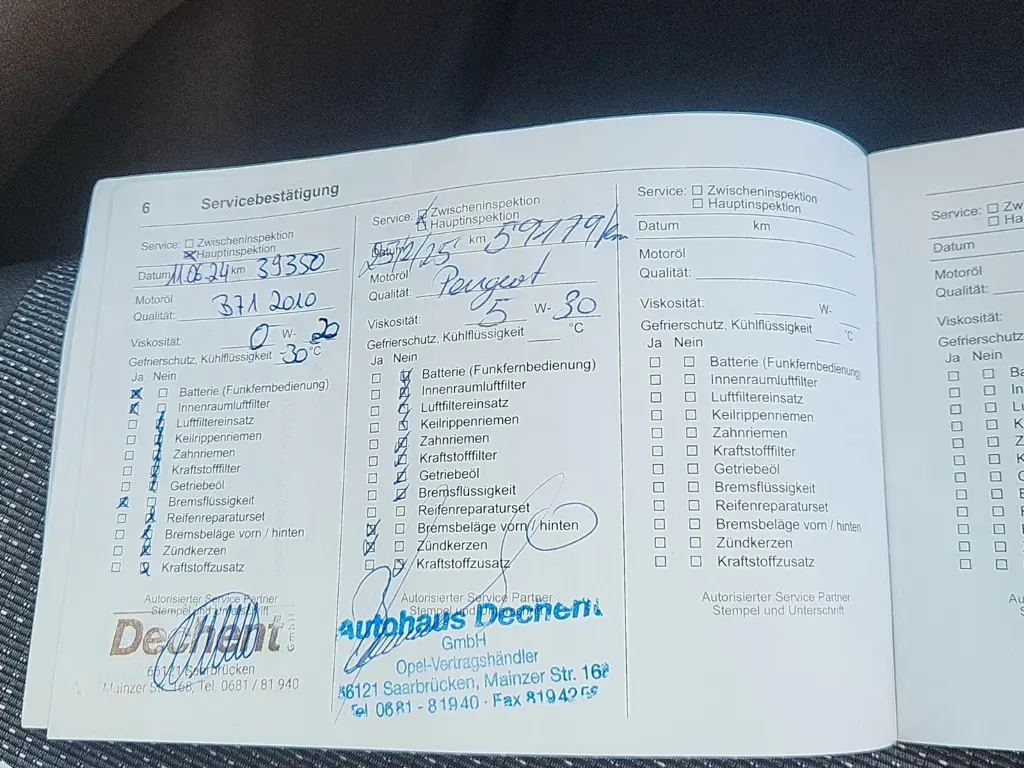 6 Servicebestätigung
Service: ☐ Zwischeninspektion
☒ Hauptinspektion
Datum 11.06.24 km 39350
Motoröl
Qualität: B71 2010
Viskosität: 0 W- 20
Gefrierschutz, Kühlflüssigkeit -30 °C
Ja Nein
☒ ☐ Batterie (Funkfernbedienung)
☒ ☐ Innenraumluftfilter
☐ ☒ Luftfiltereinsatz
☐ ☒ Keilrippenriemen
☐ ☒ Zahnriemen
☐ ☒ Kraftstofffilter
☐ ☒ Getriebeöl
☒ ☐ Bremsflüssigkeit
☐ ☒ Reifenreparaturset
☐ ☒ Bremsbeläge vorn / hinten
☐ ☒ Zündkerzen
☐ ☒ Kraftstoffzusatz
Autorisierter Service Partner
Stempel und Unterschrift
Dechent GmbH
66121 Saarbrücken
Mainzer Str. 168, Tel. 0681 / 81 940
Service: ☐ Zwischeninspektion
☒ Hauptinspektion
Datum 25/2/25 km 59179 km
Motoröl
Qualität: Peugeot
Viskosität: 5 W- 30
Gefrierschutz, Kühlflüssigkeit °C
Ja Nein
Batterie (Funkfernbedienung)
Innenraumluftfilter
Luftfiltereinsatz
Keilrippenriemen
Zahnriemen
Kraftstofffilter
Getriebeöl
Bremsflüssigkeit
Reifenreparaturset
Bremsbeläge vorn / hinten
Zündkerzen
Kraftstoffzusatz
Autorisierter Service Partner
Stempel und Unterschrift
Autohaus Dechent
GmbH
Opel-Vertragshändler
66121 Saarbrücken, Mainzer Str. 168
Tel 0681 - 81940 · Fax
Service: ☐ Zwischeninspektion
☐ Hauptinspektion
Datum km
Motoröl
Qualität:
Viskosität: W-
Gefrierschutz, Kühlflüssigkeit °C
Ja Nein
☐ ☐ Batterie (Funkfernbedienung)
☐ ☐ Innenraumluftfilter
☐ ☐ Luftfiltereinsatz
☐ ☐ Keilrippenriemen
☐ ☐ Zahnriemen
☐ ☐ Kraftstofffilter
☐ ☐ Getriebeöl
☐ ☐ Bremsflüssigkeit
☐ ☐ Reifenreparaturset
☐ ☐ Bremsbeläge vorn / hinten
☐ ☐ Zündkerzen
☐ ☐ Kraftstoffzusatz
Autorisierter Service Partner
Stempel und Unterschrift
Service: ☐ Zw
☐ Ha
Datum
Motoröl
Qualität:
Viskosität:
Gefrierschutz
Ja Nein